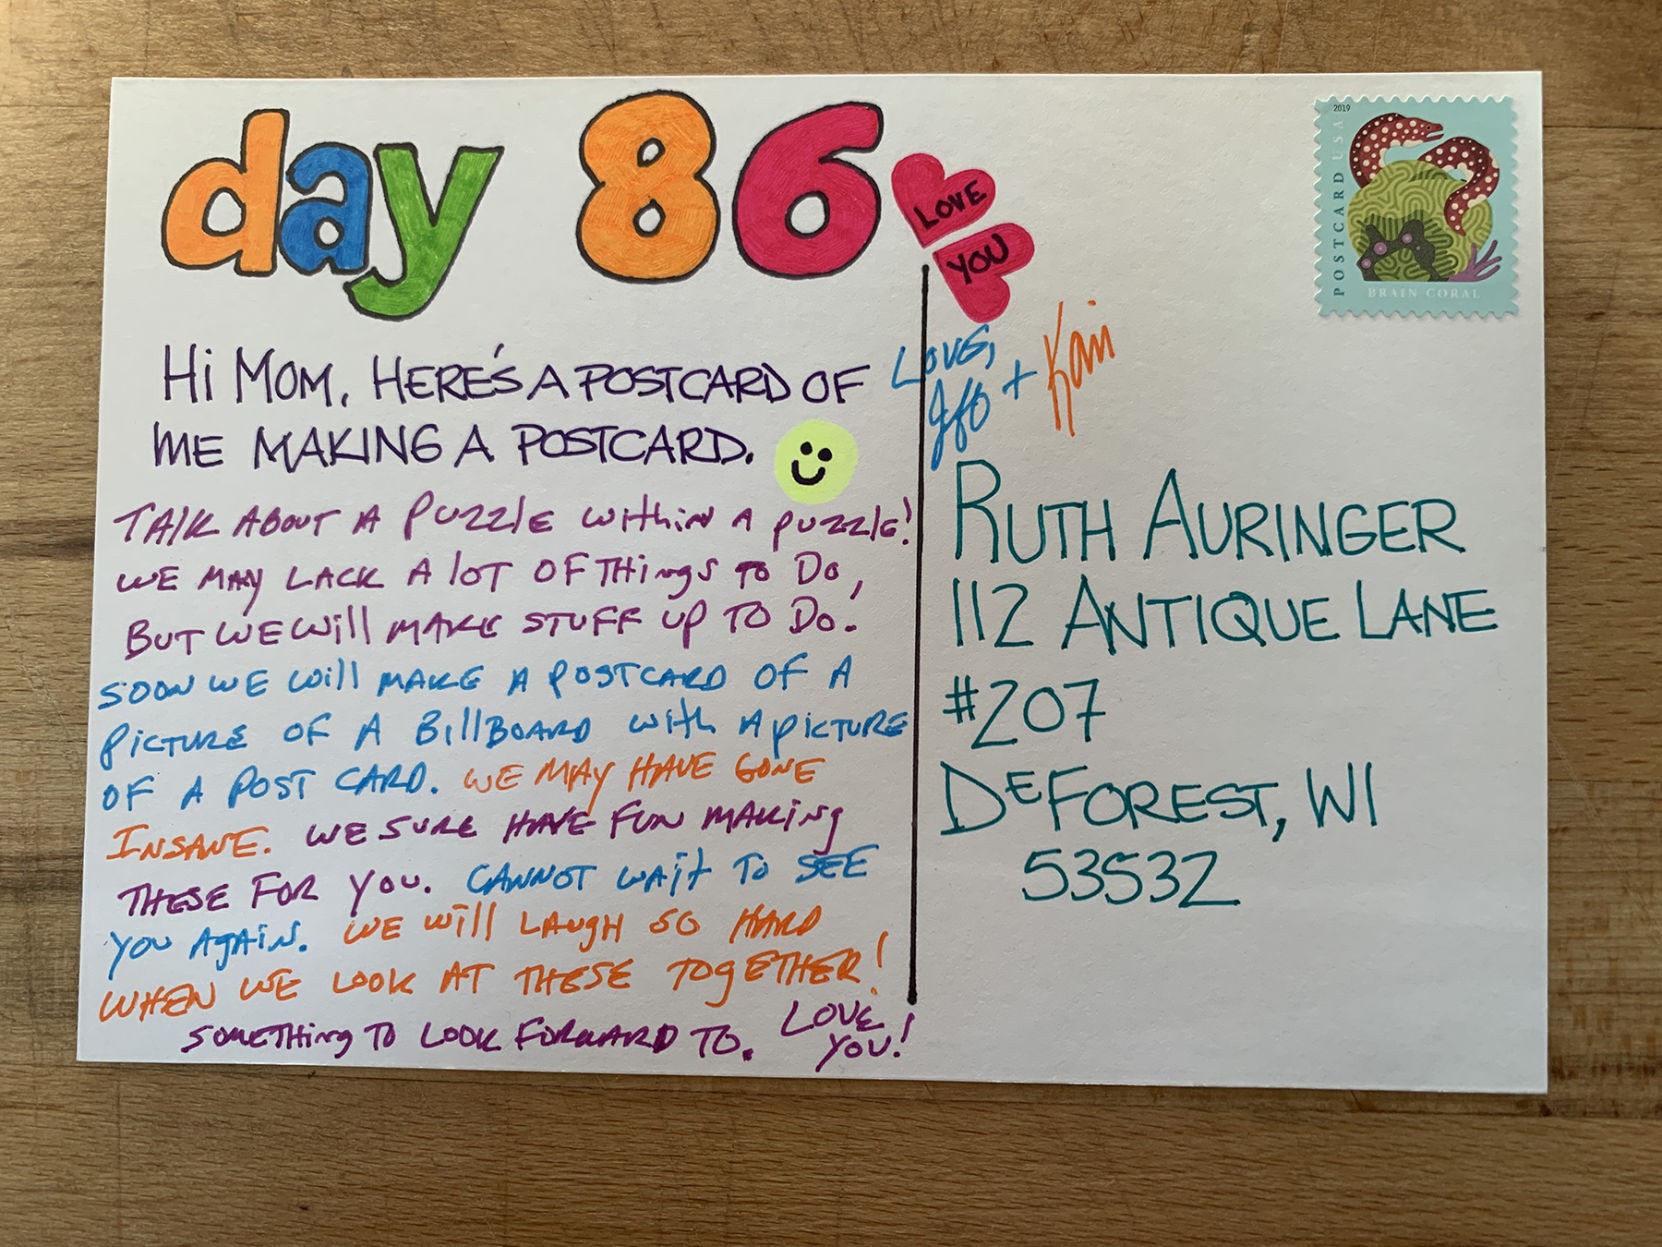 day 86
LOVE
YOU
2019
POSTCARD USA
BRAIN CORAL
Hi MOM, HERE'S A POSTCARD OF
ME MAKING A POSTCARD.
TALK ABOUT A PUZZLE WITHIN A PUZZLE!
WE MAY LACK A LOT OF THINGS TO DO,
BUT WE WILL MAKE STUFF UP TO DO!
SOON WE WILL MAKE A POSTCARD OF A
PICTURE OF A BILLBOARD WITH A PICTURE
OF A POST CARD. WE MAY HAVE GONE
INSANE. WE SURE HAVE FUN MAKING
THESE FOR YOU. CANNOT WAIT TO SEE
YOU AGAIN. WE WILL LAUGH SO HARD
WHEN WE LOOK AT THESE TOGETHER!
SOMETHING TO LOOK FORWARD TO. LOVE
YOU!
LOVE,
+
RUTH AURINGER
112 ANTIQUE LANE
#207
DEFOREST, WI
53532